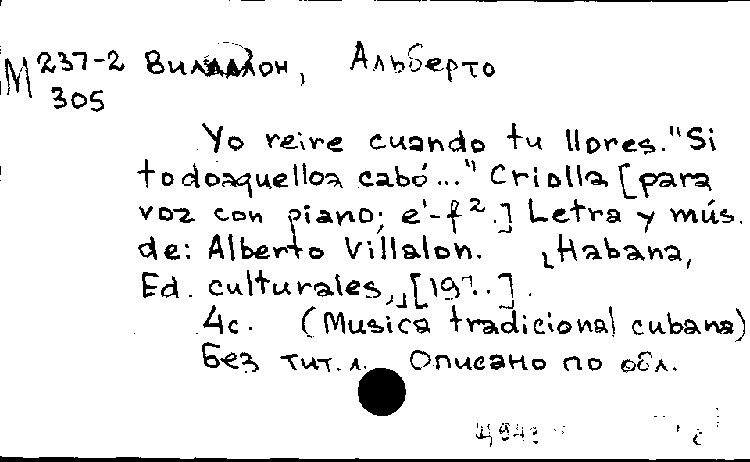 М 237-2 Виллалон, Альберто
305
Yo reire cuando tu llores. "Si
todoaquelloa cabó..." Criolla [para
voz con piano; e'-f². ] Letra y mús.
de: Alberto Villalon. [Habana,
Ed. culturales,] [197.. ].
4c. (Musica tradicional cubana)
Без тит. л. Описано по обл.